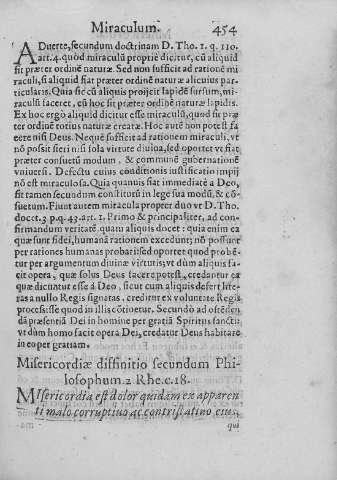 Miraculum. 454
ADuerte, secundum doctrinam D. Tho. 1. q. 110.
art. 4. quòd miraculū propriè dicitur, cū aliquid
fit præter ordinē naturæ. Sed non sufficit ad rationē mi
raculi, si aliquid fiat præter ordinē naturæ alicuius par-
ticularis. Quia sic cū aliquis proijcit lapidē sursum, mi-
raculū faceret, cū hoc sit præter ordinē naturæ lapidis.
Ex hoc ergò aliquid dicitur esse miraculū, quod fit præ
ter ordinē totius naturæ creatæ. Hoc autē non potest fa
cere nisi Deus. Nequè sufficit ad rationem miraculi, vt
nō possit fieri nisi sola virtute diuina, sed oportet vt fiat
præter consuetū modum, & communē gubernationē
vniuersi. Defectu cuius conditionis iustificatio impij
nō est miraculosa. Quia quanuis fiat immediatè a Deo,
fit tamen secundum constitutū in lege sua modū, & cō-
suetum. Fiunt autem miracula propter duo vt D. Tho.
docet. 3 p. q. 43. art. 1. Primo & principaliter, ad con-
firmandum veritatē, quam aliquis docet: quia enim ea
quæ sunt fidei, humanā rationem excedunt; nō possunt
per rationes humanas probari: sed oportet quod probē-
tur per argumentum diuinæ virtutis; vt dùm aliquis fa-
cit opera, quæ solus Deus facere potest, credantur ea
quæ dicuntur esse à Deo, sicut cum aliquis defert lite-
ras anullo Regis signatas, creditur ex voluntate Regis
processisse quod in illis cōtinetur. Secundò ad ostēden
dā præsentiā Dei in homine per gratiā Spiritus sancti:
vt dùm homo facit opera Dei, credatur Deus habitare
in eo per gratiam.
Misericordiæ diffinitio secundum Phi-
losophum. 2 Rhe. c. 18.
MIsericordia est dolor quidam ex apparen
ti malo corruptiuo ac contristatiuo eius,
qui